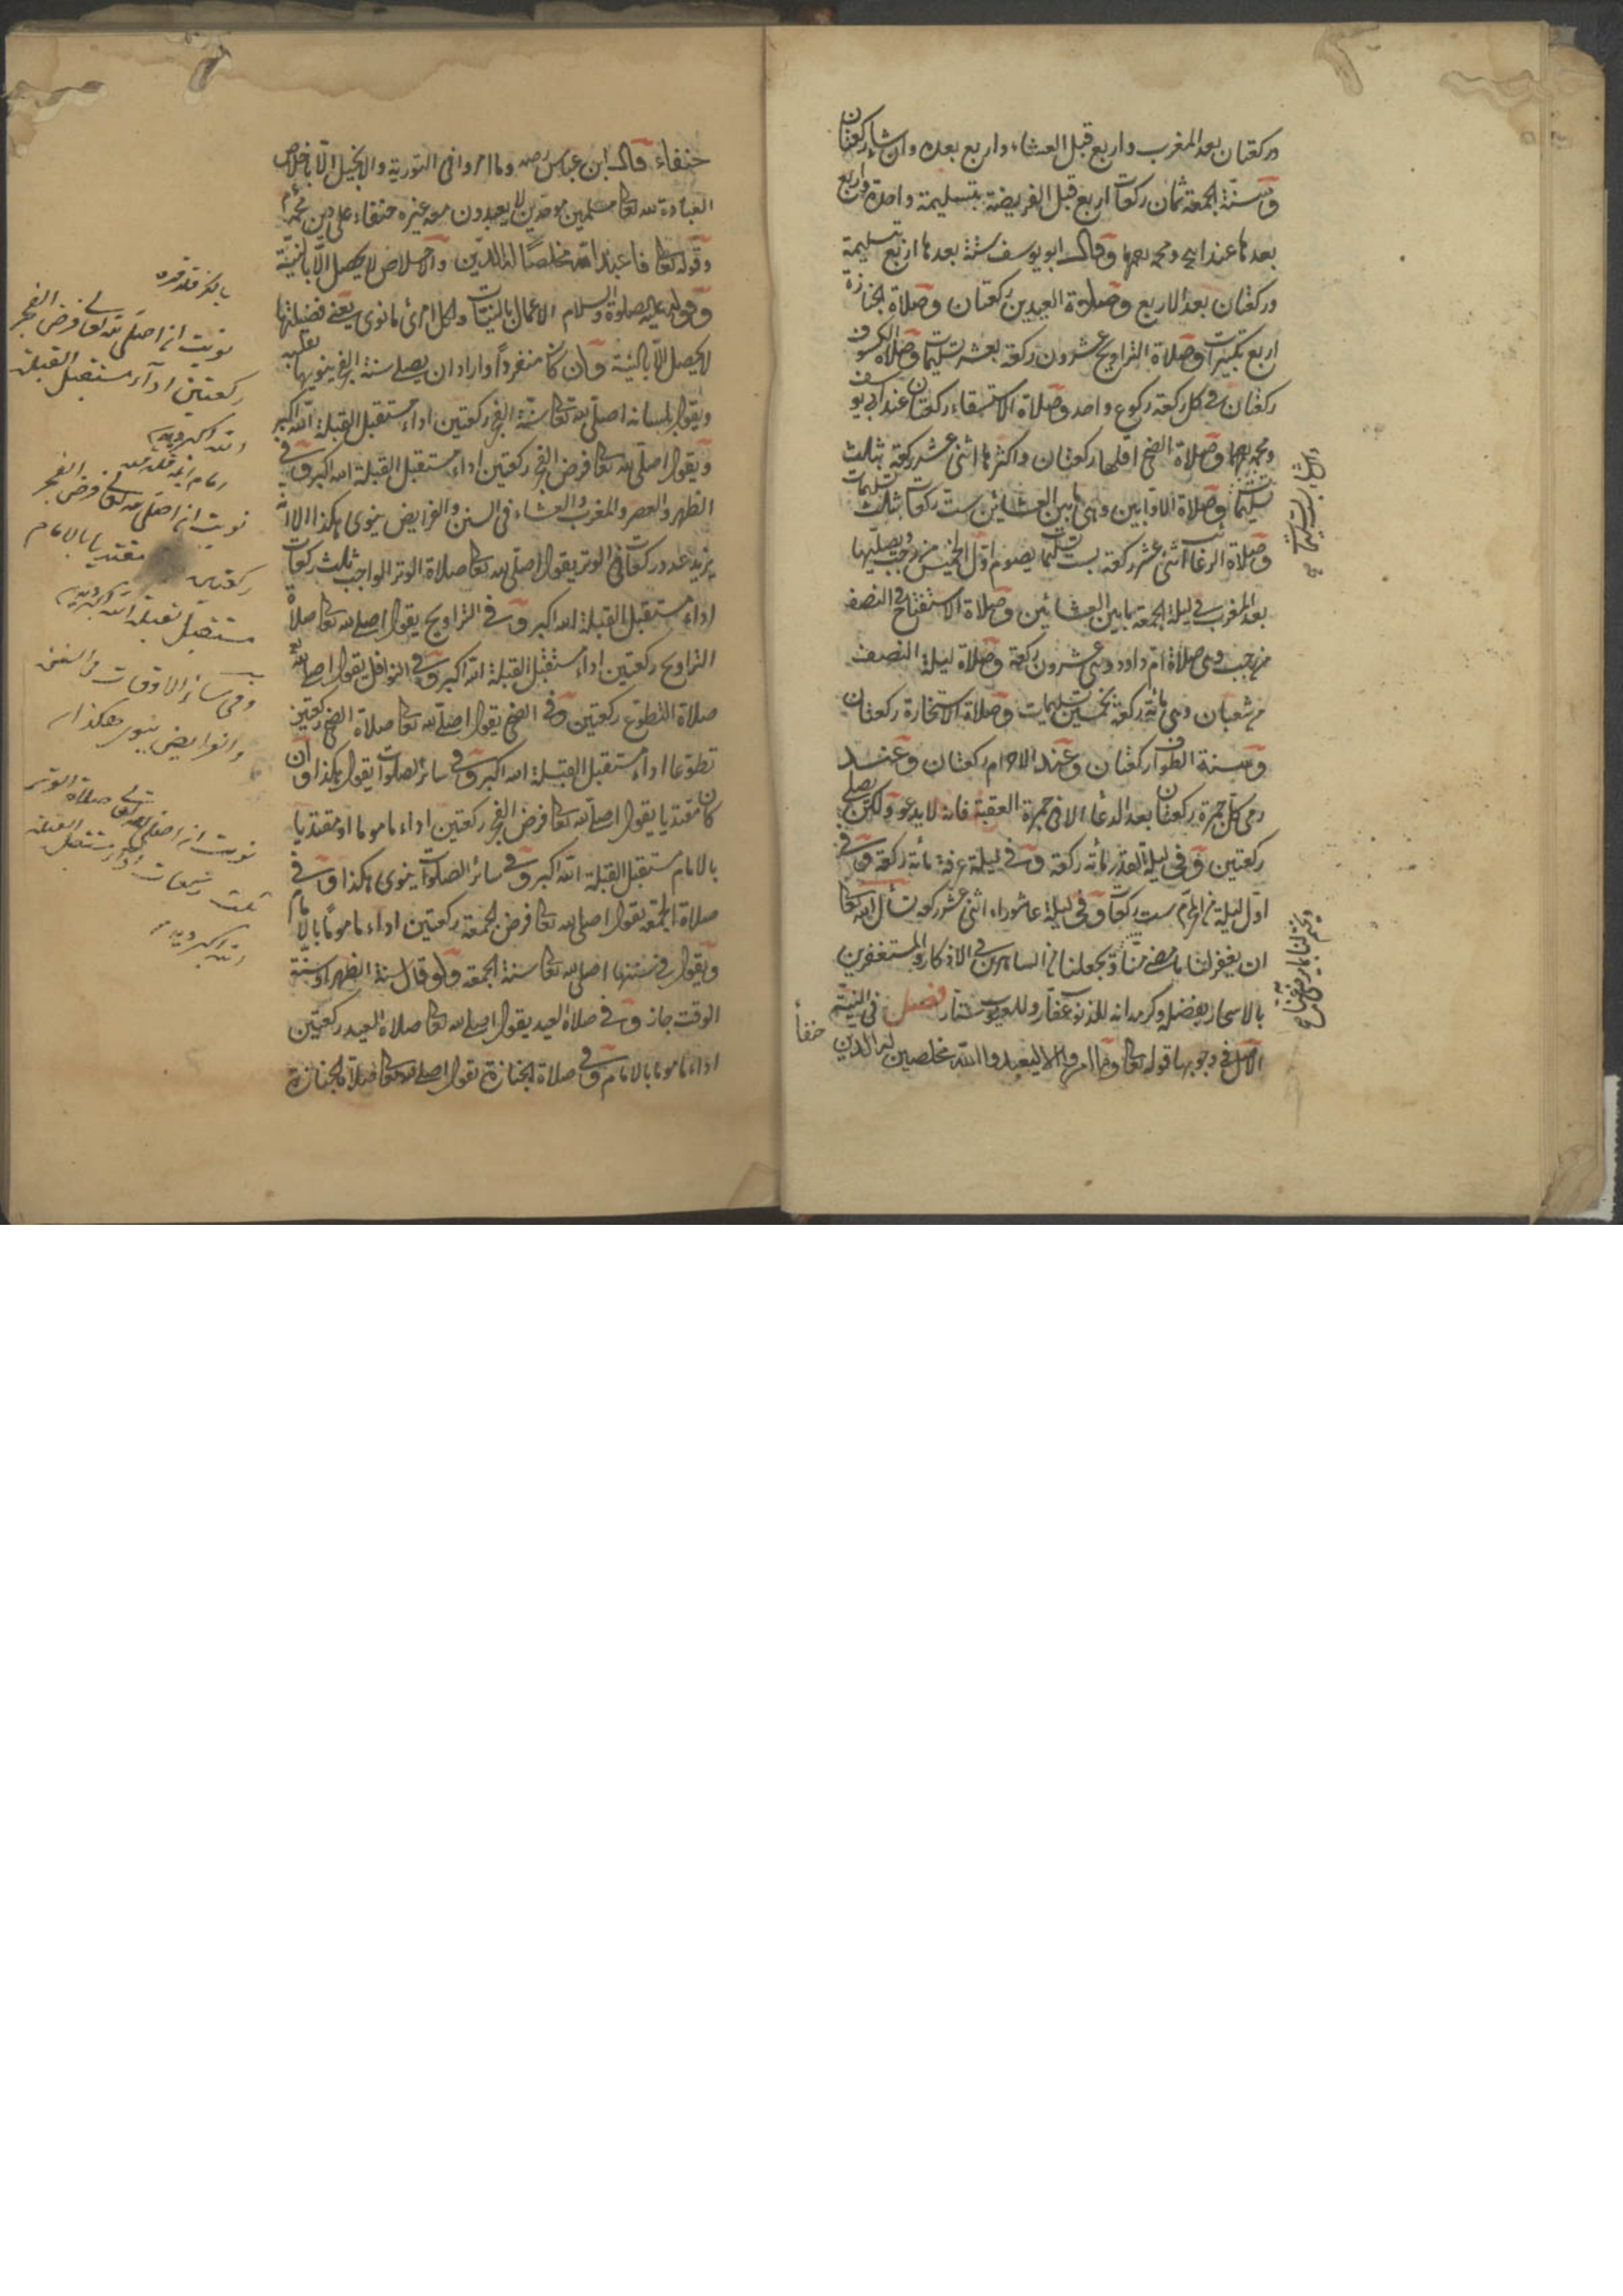 وركعتان بعد المغرب واربع قبل العشاء واربع بعده وان شاء ركعتان
وسنة الجمعة ثمان ركعات اربع قبل الفريضة بتسليمة واحدة واربع
بعدها عند ابي ح ومحمد رحمهما وقال ابو يوسف ستة بعدها اربع بتسليمة
وركعتان بعد الاربع وصلوة العيدين ركعتان وصلاة الجنازة
اربع تكبيرات وصلاة التراويح عشرون ركعة بعشر تسليمات وصلاة الكسوف
ركعتان في كل ركعة ركوع واحد وصلاة الاستسقاء ركعتان عند ابي يوسف
ومحمد رحمهما وصلاة الضحى اقلها ركعتان واكثرها اثنى عشر ركعة بثلث
تسليمات وصلاة الاوابين وهي ما بين العشائين ست ركعات بثلث تسليمات
وصلاة الرغائب اثنى عشر ركعة بست تسليمات يصوم اول الخميس من رجب ويصليها
بعد المغرب في ليلة الجمعة ما بين العشائين وصلاة الاستفتاح في النصف
من رجب وهي صلاة ام داود وهي عشرون ركعة وصلاة ليلة النصف
من شعبان وهي مائة ركعة بخمسين تسليمات وصلاة الاستخارة ركعتان
وسنة الطواف ركعتان وعند الاحرام ركعتان وعند
رمي كل جمرة ركعتان بعد الدعاء الا في جمرة العقبة فانه لا يدعو ولكن يصلي
ركعتين وفي ليلة القدر مائة ركعة وفي ليلة عرفة مائة ركعة وفي
اول ليلة من المحرم ست ركعات وفي ليلة عاشوراء اثنى عشر ركعة نسأل الله تعالى
ان يغفر لنا ما مضى منا ويجعلنا من الساهرين في الاذكار والمستغفرين
بالاسحار بفضله وكرمه انه للذنوب غفار وللعيوب ستار فصل في النية
الاصل في وجوبها قوله تعالى وما امروا الا ليعبدوا الله مخلصين له الدين
حنفاء
حنفاء قال ابن عباس رضه وما امروا في التورية والانجيل الا باخلاص
العبادة لله تعالى مسلمين موحدين لا يعبدون معه غيره حنفاء على دين محمد
وقوله تعالى فاعبد الله مخلصا له الدين والاخلاص لا يحصل الا بالنية
وقوله عليه الصلوة والسلام الاعمال بالنيات ولكل امرئ ما نوى يعني فضيلتها
لا يحصل الا بالنية وان كان منفردا واراد ان يصلي سنة الفجر ينويها بقلبه
ويقول بلسانه اصلي لله تعالى سنة الفجر ركعتين اداء مستقبل القبلة الله اكبر
ويقول اصلي لله تعالى فرض الفجر ركعتين اداء مستقبل القبلة الله اكبر وفي
الظهر والعصر والمغرب والعشاء في السنن والفرايض ينوي هكذا الا انه
يزيد عدد ركعات وفي الوتر يقول اصلي لله تعالى صلاة الوتر الواجب ثلث ركعات
اداء مستقبل القبلة الله اكبر وفي التراويح يقول اصلي لله تعالى صلاة
التراويح ركعتين اداء مستقبل القبلة الله اكبر وفي النوافل يقول اصلي لله تعالى
صلاة التطوع ركعتين وفي الضحى يقول اصلي لله تعالى صلاة الضحى ركعتين
تطوعا اداء مستقبل القبلة الله اكبر وفي سائر الصلوات يقول هكذا وان
كان مقتديا يقول اصلي لله تعالى فرض الفجر ركعتين اداء ماموما او مقتديا
بالامام مستقبل القبلة الله اكبر وفي سائر الصلوات ينوي هكذا وفي
صلاة الجمعة يقول اصلي لله تعالى فرض الجمعة ركعتين اداء ماموما بالامام
ويقول في سنتها اصلي لله تعالى سنة الجمعة ولو قال سنة الظهر او سنة
الوقت جاز وفي صلاة العيد يقول اصلي لله تعالى صلاة العيد ركعتين
اداء ماموما بالامام وفي صلاة الجنازة يقول اصلي لله تعالى صلاة الجنازة
نويت ان اصلي لله تعالى فرض الفجر
ركعتين اداء مستقبل القبلة
الله اكبر
نويت ان اصلي لله تعالى فرض الفجر
ركعتين مقتديا بالامام
مستقبل القبلة الله اكبر
وفي سائر الاوقات من السنن
والفرايض ينوي هكذا
نويت ان اصلي لله تعالى صلاة الوتر
ثلث ركعات اداء مستقبل القبلة
الله اكبر